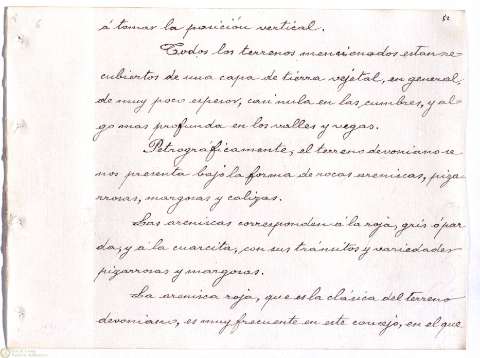 52
á tomar la posición vertical.
Todos los terrenos mencionados estan re
cubiertos de una capa de tierra vejetal, en general,
de muy poco espesor, casi nula en las cumbres, y al-
go mas profunda en los valles y vegas.
Petrográficamente, el terreno devoniano se
nos presenta bajo la forma de rocas areniscas, piza-
rrosas, margosas y calizas.
Las areniscas corresponden á la roja, gris ó par
da, y á la cuarcita, con sus tránsitos y variedades
pizarrosas y margosas.
La arenisca roja, que es la clásica del terreno
devoniano, es muy frecuente en este concejo, en el que